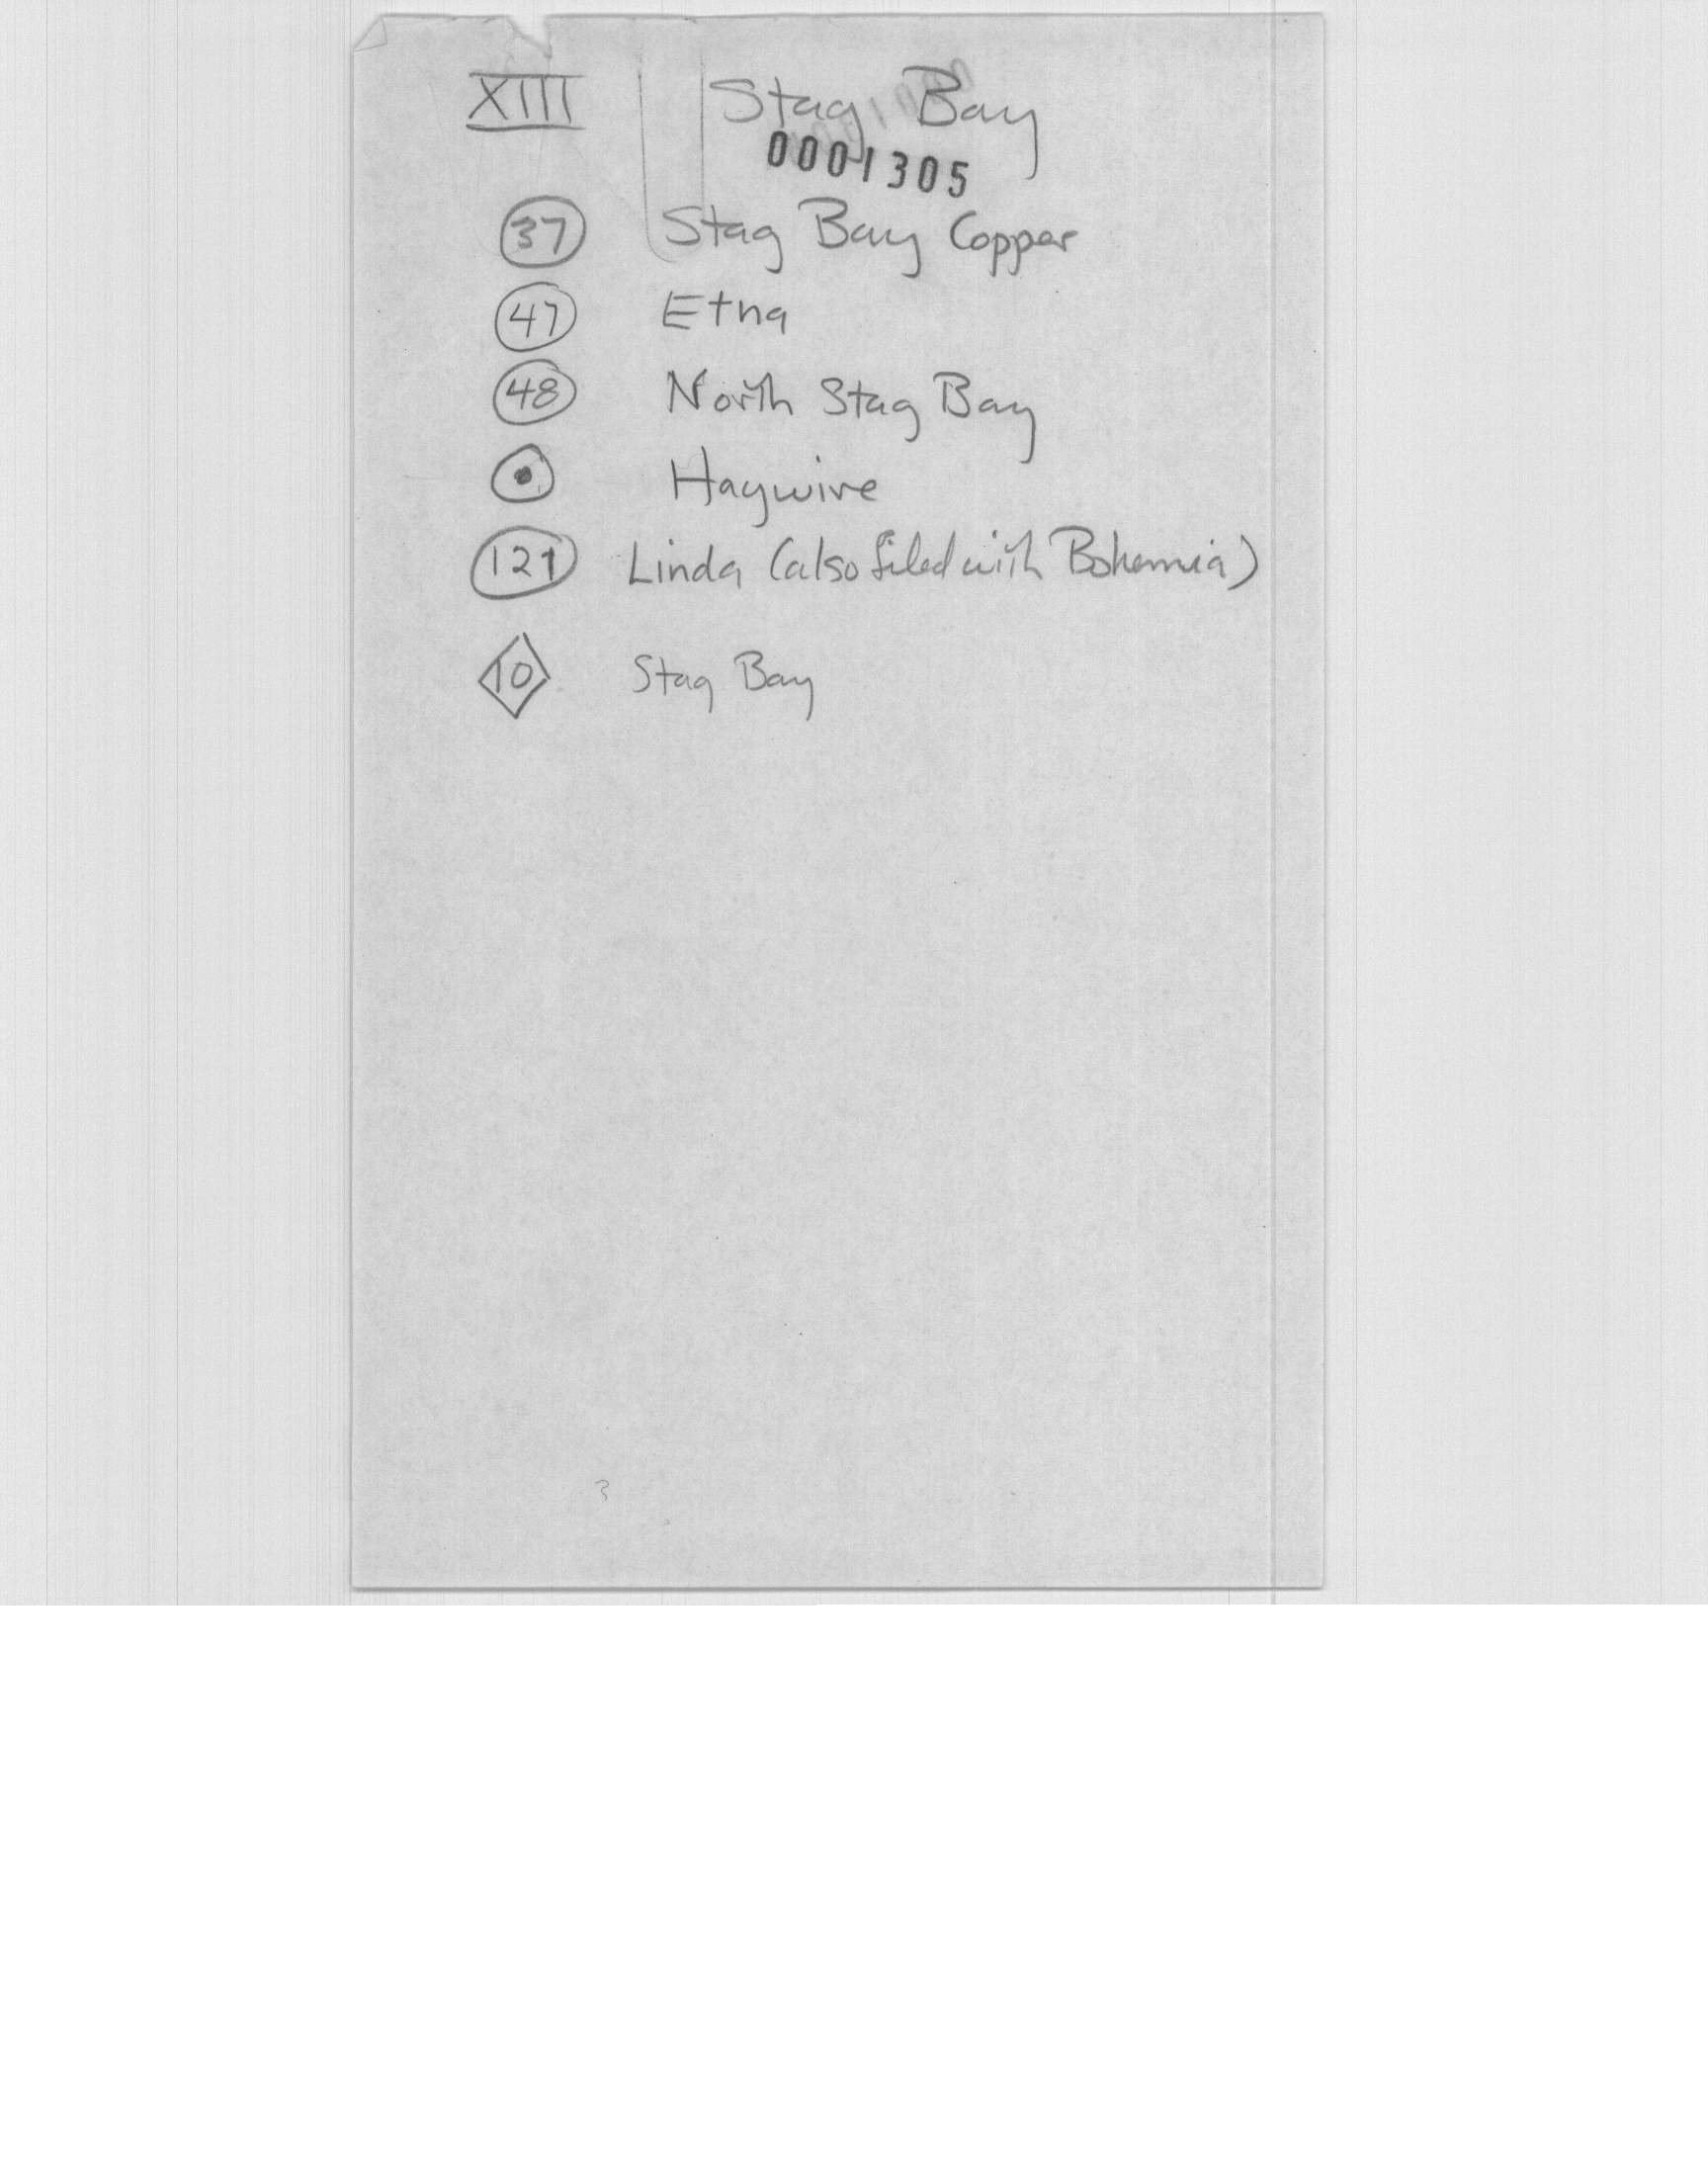 XIII Stag Bay
0001305
37 Stag Bay Copper
47 Etna
48 North Stag Bay
Haywire
121 Linda (also filed with Bohemia)
10 Stag Bay